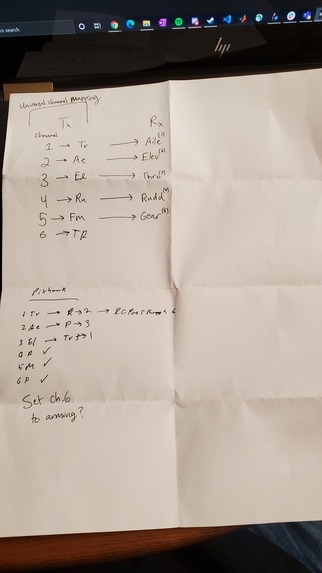 to search
hp
Universal channel Mapping
Tx Rx
Channel
1 → Tr → Aile(1)
2 → Ae → Elev(2)
3 → El → Thro(3)
4 → Ru → Rudd(4)
5 → Fm → Gear(5)
6 → TR
Pixhawk
1 Tr → R → 2 → RC 6
2 Ae → P → 3
3 El → Tr → 1
4 R ✓
5 M ✓
6 F ✓
Set ch.6
to arming?